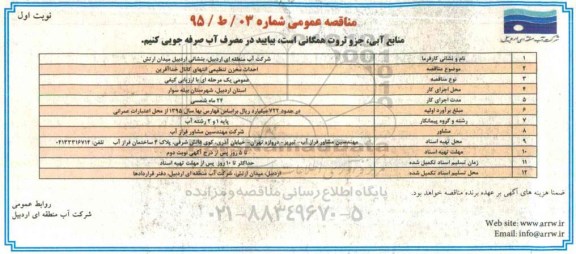 نوبت اول
مناقصه عمومی شماره ۰۳ / ط / ۹۵
شرکت آب منطقه‌ای اردبیل
منابع آبی، جزو ثروت همگانی است، بیایید در مصرف آب صرفه جویی کنیم.
۱ نام و نشانی کارفرما شرکت آب منطقه ای اردبیل، بنشانی اردبیل میدان ارتش
۲ موضوع مناقصه احداث مخزن تنظیمی انتهای کانال خداآفرین
۳ نوع مناقصه عمومی یک مرحله ای با ارزیابی کیفی
۴ محل اجرای کار استان اردبیل، شهرستان بیله سوار
۵ مدت اجرای کار ۲۴ ماه شمسی
۶ مبلغ برآورد اولیه در حدود ۷۲۲ میلیارد ریال براساس فهارس بها سال ۱۳۹۵ از محل اعتبارات عمرانی
۷ رشته و گروه پیمانکار پایه ۱ و ۲ رشته آب
۸ مشاور شرکت مهندسین مشاور فراز آب
۹ محل تهیه اسناد مهندسین مشاور فراز آب - تبریز - دروازه تهران- خیابان آذری، کوی دانش شرقی، پلاک ۴ ساختمان فراز آب تلفن: ۰۴۱۳۳۳۱۶۷۱۲
۱۰ مهلت تهیه اسناد تا ۵ روز پس از درج آگهی نوبت دوم
۱۱ زمان تسلیم اسناد تکمیل شده حداکثر تا ۱۰ روز پس از مهلت تهیه اسناد
۱۲ محل تسلیم اسناد تکمیل شده اردبیل، میدان ارتش، شرکت آب منطقه ای اردبیل، دفتر قراردادها
ضمنا هزینه های آگهی بر عهده برنده مناقصه خواهد بود.
پایگاه اطلاع رسانی مناقصه و مزایده
۰۲۱-۸۸۳۴۹۶۷۰-۵
روابط عمومی
شرکت آب منطقه ای اردبیل
Web site: www.arrw.ir
Email: info@arrw.ir